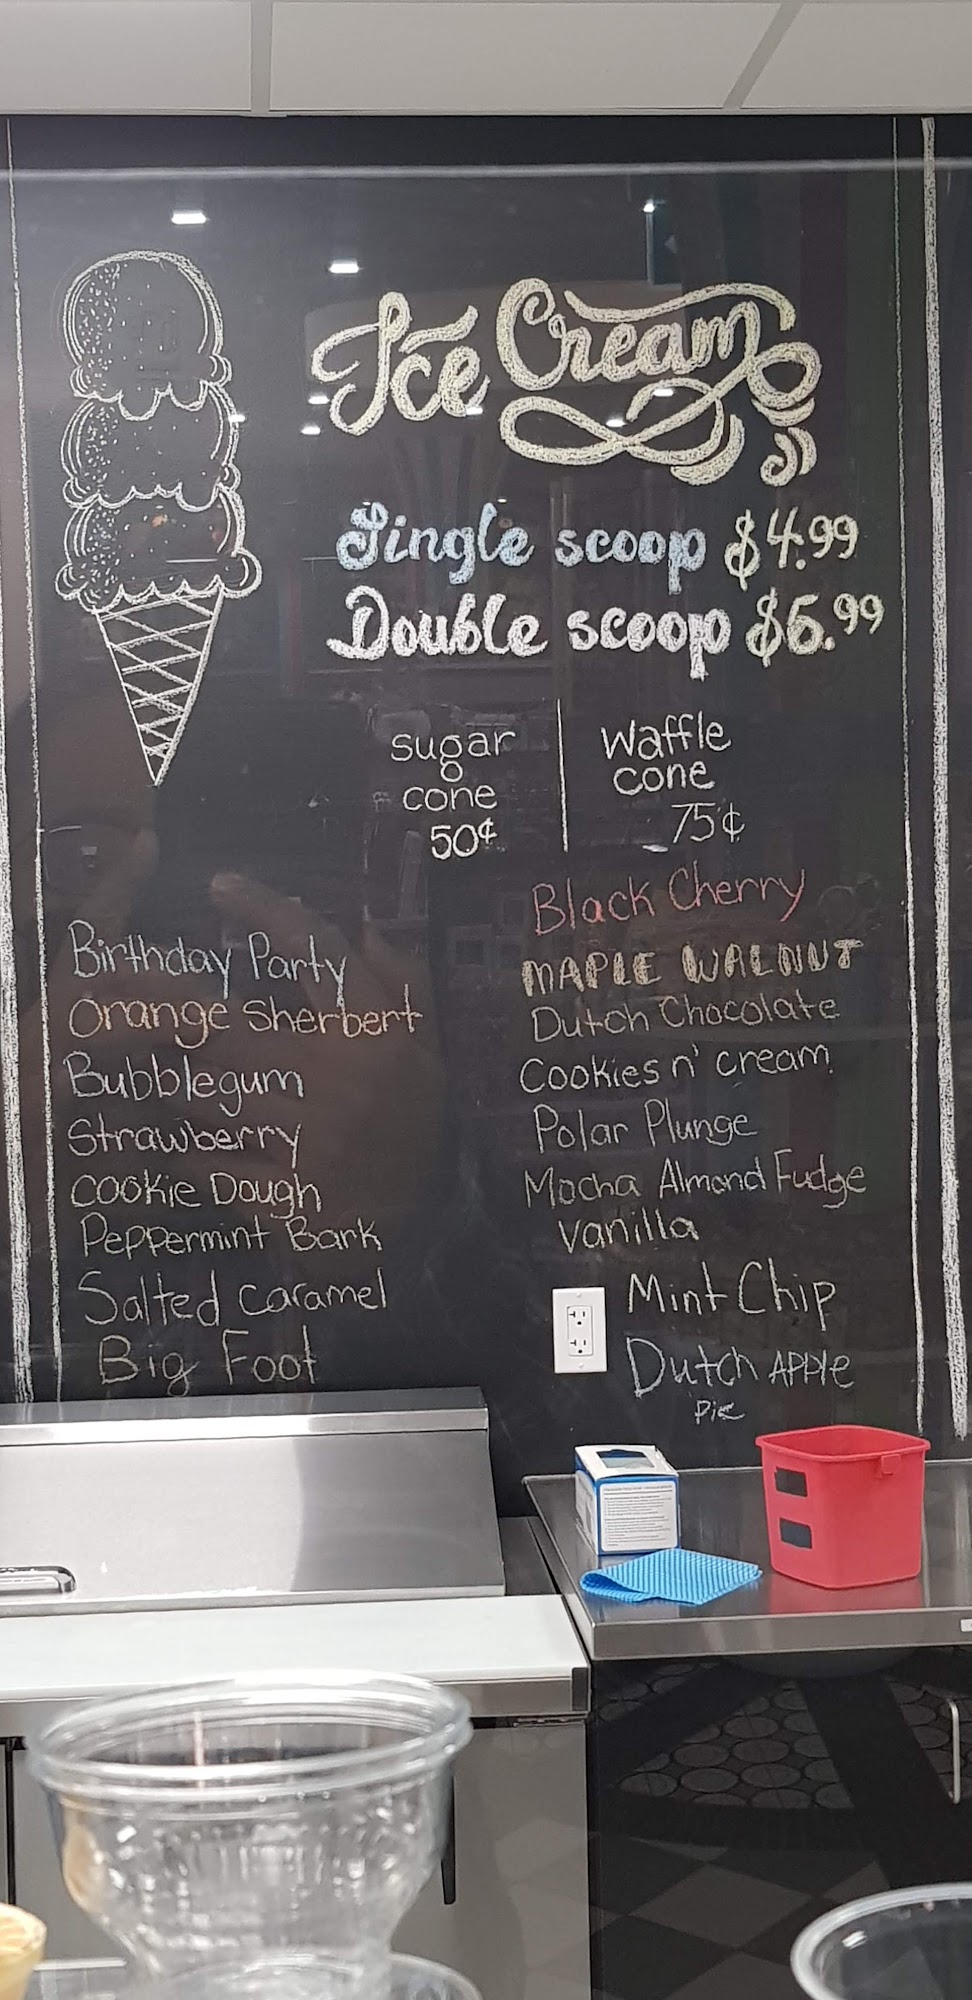 Ice Cream
Single scoop $4.99
Double scoop $6.99
sugar
cone
50¢
Waffle
cone
75¢
Birthday Party
Orange Sherbert
Bubblegum
Strawberry
Cookie Dough
Peppermint Bark
Salted Caramel
Big Foot
Black Cherry
MAPLE WALNUT
Dutch Chocolate
Cookies n' cream
Polar Plunge
Mocha Almond Fudge
Vanilla
Mint Chip
Dutch APPle
Pie